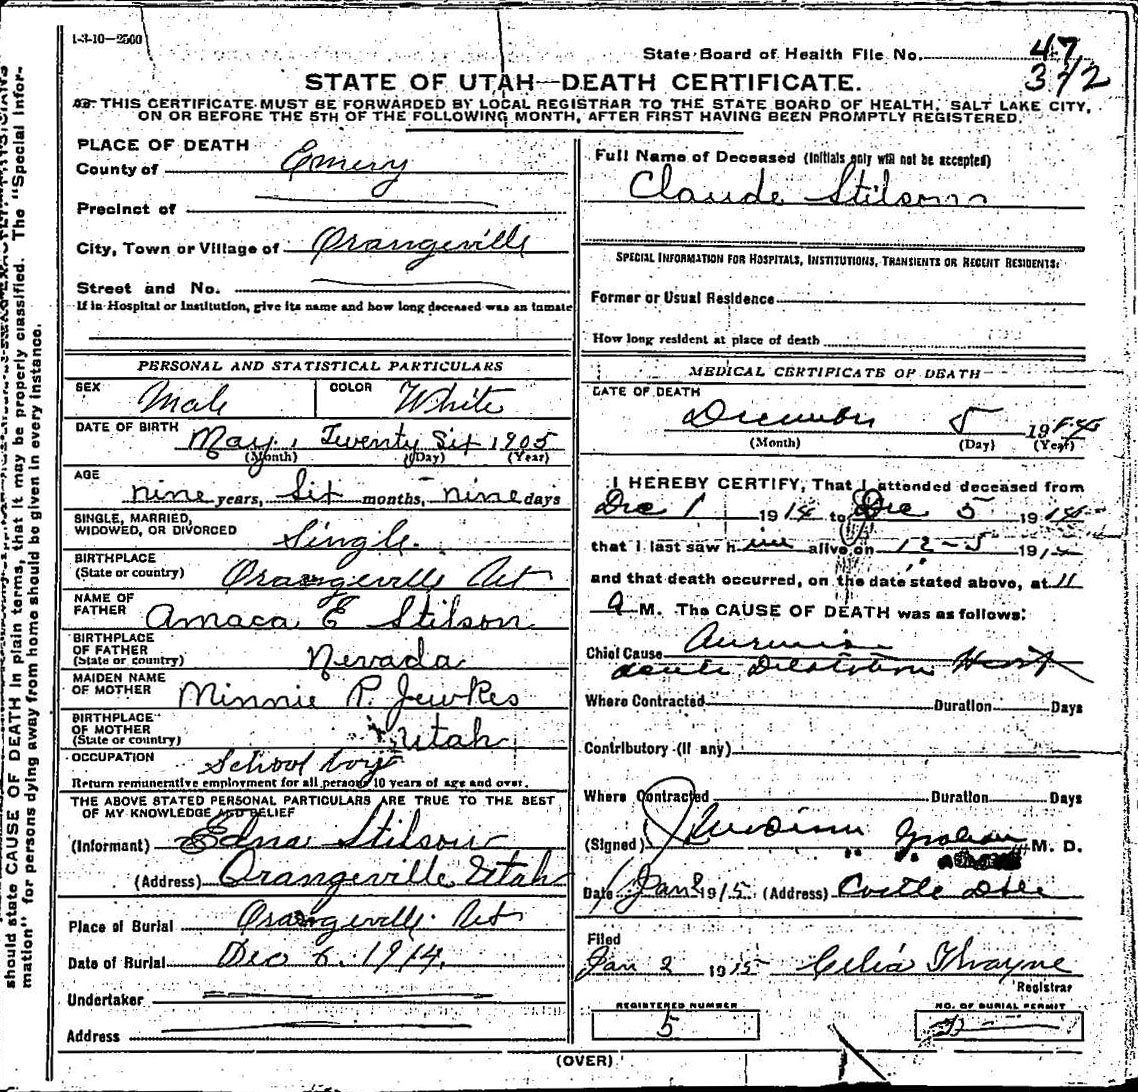 1-3-10—2500
State Board of Health File No. 47
372
STATE OF UTAH—DEATH CERTIFICATE.
THIS CERTIFICATE MUST BE FORWARDED BY LOCAL REGISTRAR TO THE STATE BOARD OF HEALTH, SALT LAKE CITY,
ON OR BEFORE THE 5TH OF THE FOLLOWING MONTH, AFTER FIRST HAVING BEEN PROMPTLY REGISTERED.
should state CAUSE OF DEATH in plain terms, that it may be properly classified. The "Special Infor-
mation" for persons dying away from home should be given in every instance.
PLACE OF DEATH
County of Emery
Precinct of
City, Town or Village of Orangeville
Street and No.
If in Hospital or Institution, give its name and how long deceased was an inmate
PERSONAL AND STATISTICAL PARTICULARS
SEX Male COLOR White
DATE OF BIRTH May, Twenty Six 1905
(Month) (Day) (Year)
AGE
nine years, Six months, nine days
SINGLE, MARRIED,
WIDOWED, OR DIVORCED Single.
BIRTHPLACE
(State or country) Orangeville Ut
NAME OF
FATHER Amaca E Stilson
BIRTHPLACE
OF FATHER
(State or country) Nevada
MAIDEN NAME
OF MOTHER Minnie P. Jewkes
BIRTHPLACE
OF MOTHER
(State or country) Utah
OCCUPATION School boy
Return remunerative employment for all persons 10 years of age and over.
THE ABOVE STATED PERSONAL PARTICULARS ARE TRUE TO THE BEST
OF MY KNOWLEDGE AND BELIEF
(Informant) Edna Stilson
(Address) Orangeville Utah
Place of Burial Orangeville Ut
Date of Burial Dec 6. 1914.
Undertaker
Address
Full Name of Deceased (Initials only will not be accepted)
Claude Stilson
SPECIAL INFORMATION FOR HOSPITALS, INSTITUTIONS, TRANSIENTS OR RECENT RESIDENTS:
Former or Usual Residence
How long resident at place of death
MEDICAL CERTIFICATE OF DEATH
DATE OF DEATH
December 5 19
(Month) (Day) (Year)
I HEREBY CERTIFY, That I attended deceased from
Dec 1 1914 to Dec 5 1914
that I last saw him alive on 12-5 1914
and that death occurred, on the date stated above, at 11
a M. The CAUSE OF DEATH was as follows:
Chief Cause
acute Dilatation Heart
Where Contracted Duration Days
Contributory (if any)
Where Contracted Duration Days
(Signed) M. D.
Date Jan 2 1915 (Address) Castle Dale
Filed
Jan 2 1915 Celia Thrayne
Registrar
REGISTERED NUMBER
5
NO. OF BURIAL PERMIT
(OVER)